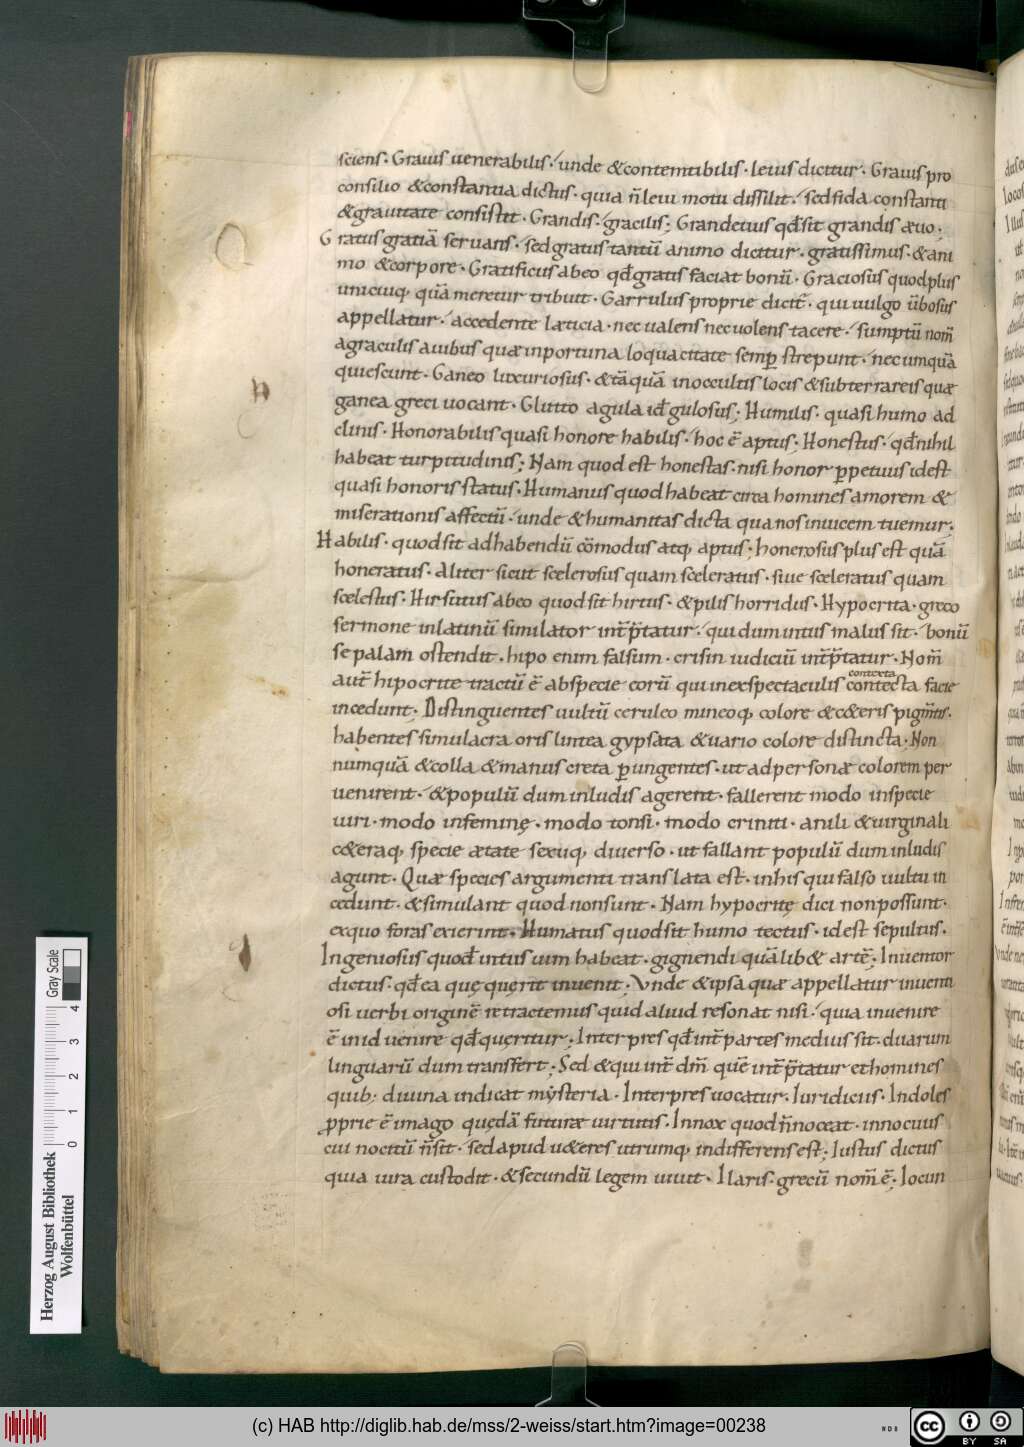 sciens. Grauis uenerabilis. unde &contemtibilis. leuis dicitur. Grauis pro
consilio &constantia dictus. quia ñ leui motu dissilit. sed fida constanti
&grauitate consistit. Grandis. gracilis; Grandeuus qđ sit grandis æuo;
Gratus gratiā seruans. sed gratus tantū animo dicitur. gratissimus. &ani
mo &corpore. Gratificus abeo qđ gratis faciat bonū. Graciosus quod plus
unicuiq, quā meretur tribuit. Garrulus proprie dicit̄. qui uulgo ūbosus
appellatur. accedente læticia. nec ualens nec uolens tacere. sumptū nom̄
agraculis auibus quæ inportuna loquacitate semꝑ strepunt. nec umquā
quiescunt. Ganeo luxuriosus. &tāquā inoccultis locis &subterrareis quæ
ganea greci uocant. Glutto agula iđ gulosus; Humilis. quasi humo ad
clinis. Honorabilis quasi honore habilis. hoc ē aptus; Honestus. qđ nihil
habeat turpitudinis; Nam quod est honestas. nisi honor ꝑpetuus idest
quasi honoris status. Humanus quod habeat circa homines amorem &
miserationis affectū. unde &humanitas dicta qua nos inuicem tuemur;
Habilis. quod sit ad habendū cōmodus atq, aptus; honerosus plus est quā
honeratus. aliter sicut scelerosus quam sceleratus. siue sceleratus quam
scelestus. Hirsutus abeo quod sit hirtus. &pilis horridus. Hypocrita. greco
sermone inlatinū similator int̄p̄tatur. qui dum intus malus sit. bonū
se palam ostendit. hipo enim falsum. crisin iudiciū int̄p̄tatur. Nom̄
aut̄ hipocrite tractū ē abspecie corū qui inexspectaculis contecta facie
contexta
incedunt; Distinguentes uultū ceruleo mineoq, colore &c&eris pigm̄tis.
habentes simulacra oris lintea gypsata &uario colore distincta. Non
numquā &colla &manus creta ꝑungentes. ut ad personæ colorem per
uenirent. &populū dum inludis agerent. fallerent modo inspecie
uiri. modo infeminę. modo tonsi. modo criniti. anili &uirginali
c&eraq, specie ætate sexuq, diuerso. ut fallant populū dum inludis
agunt. Quæ species argumenti translata est. inhis qui falso uultu in
cedunt. &simulant quod non sunt. Nam hypocritę dici non possunt.
exquo foras exierint. Humatus quod sit humo tectus. idest sepultus.
Ingeniosus quođ intus uim habeat. gignendi quālib& artē. Inuentor
dictus. qđ ea quę quęrit inuenit. Vnde &ipsa quæ appellatur inuenti
osi uerbi originē retractemus quid aliud resonat nisi. quia inuenire
ē inid uenire qđ quęritur. Interpres qđ int̄ partes medius sit. duarum
linguarū dum transfert; Sed &qui int̄ dm̄ quē int̄p̄tatur et homines
quib: diuina indicat mysteria. Interpres uocatur. Iuridicus. Indoles
ꝓprie ē imago quędā futuræ uirtutis. Innox quod ñ noceat. innocuus
cui nocitū ñ sit. sed apud u&eres utrumq, indifferens est; Iustus dictus
quia iura custodit. &secundū legem uiuit. Ilaris. grecū nom̄ ē; Iocun
Herzog August Bibliothek
Wolfenbüttel
0 1 2 3 4
Gray Scale
(c) HAB http://diglib.hab.de/mss/2-weiss/start.htm?image=00238
cc BY SA